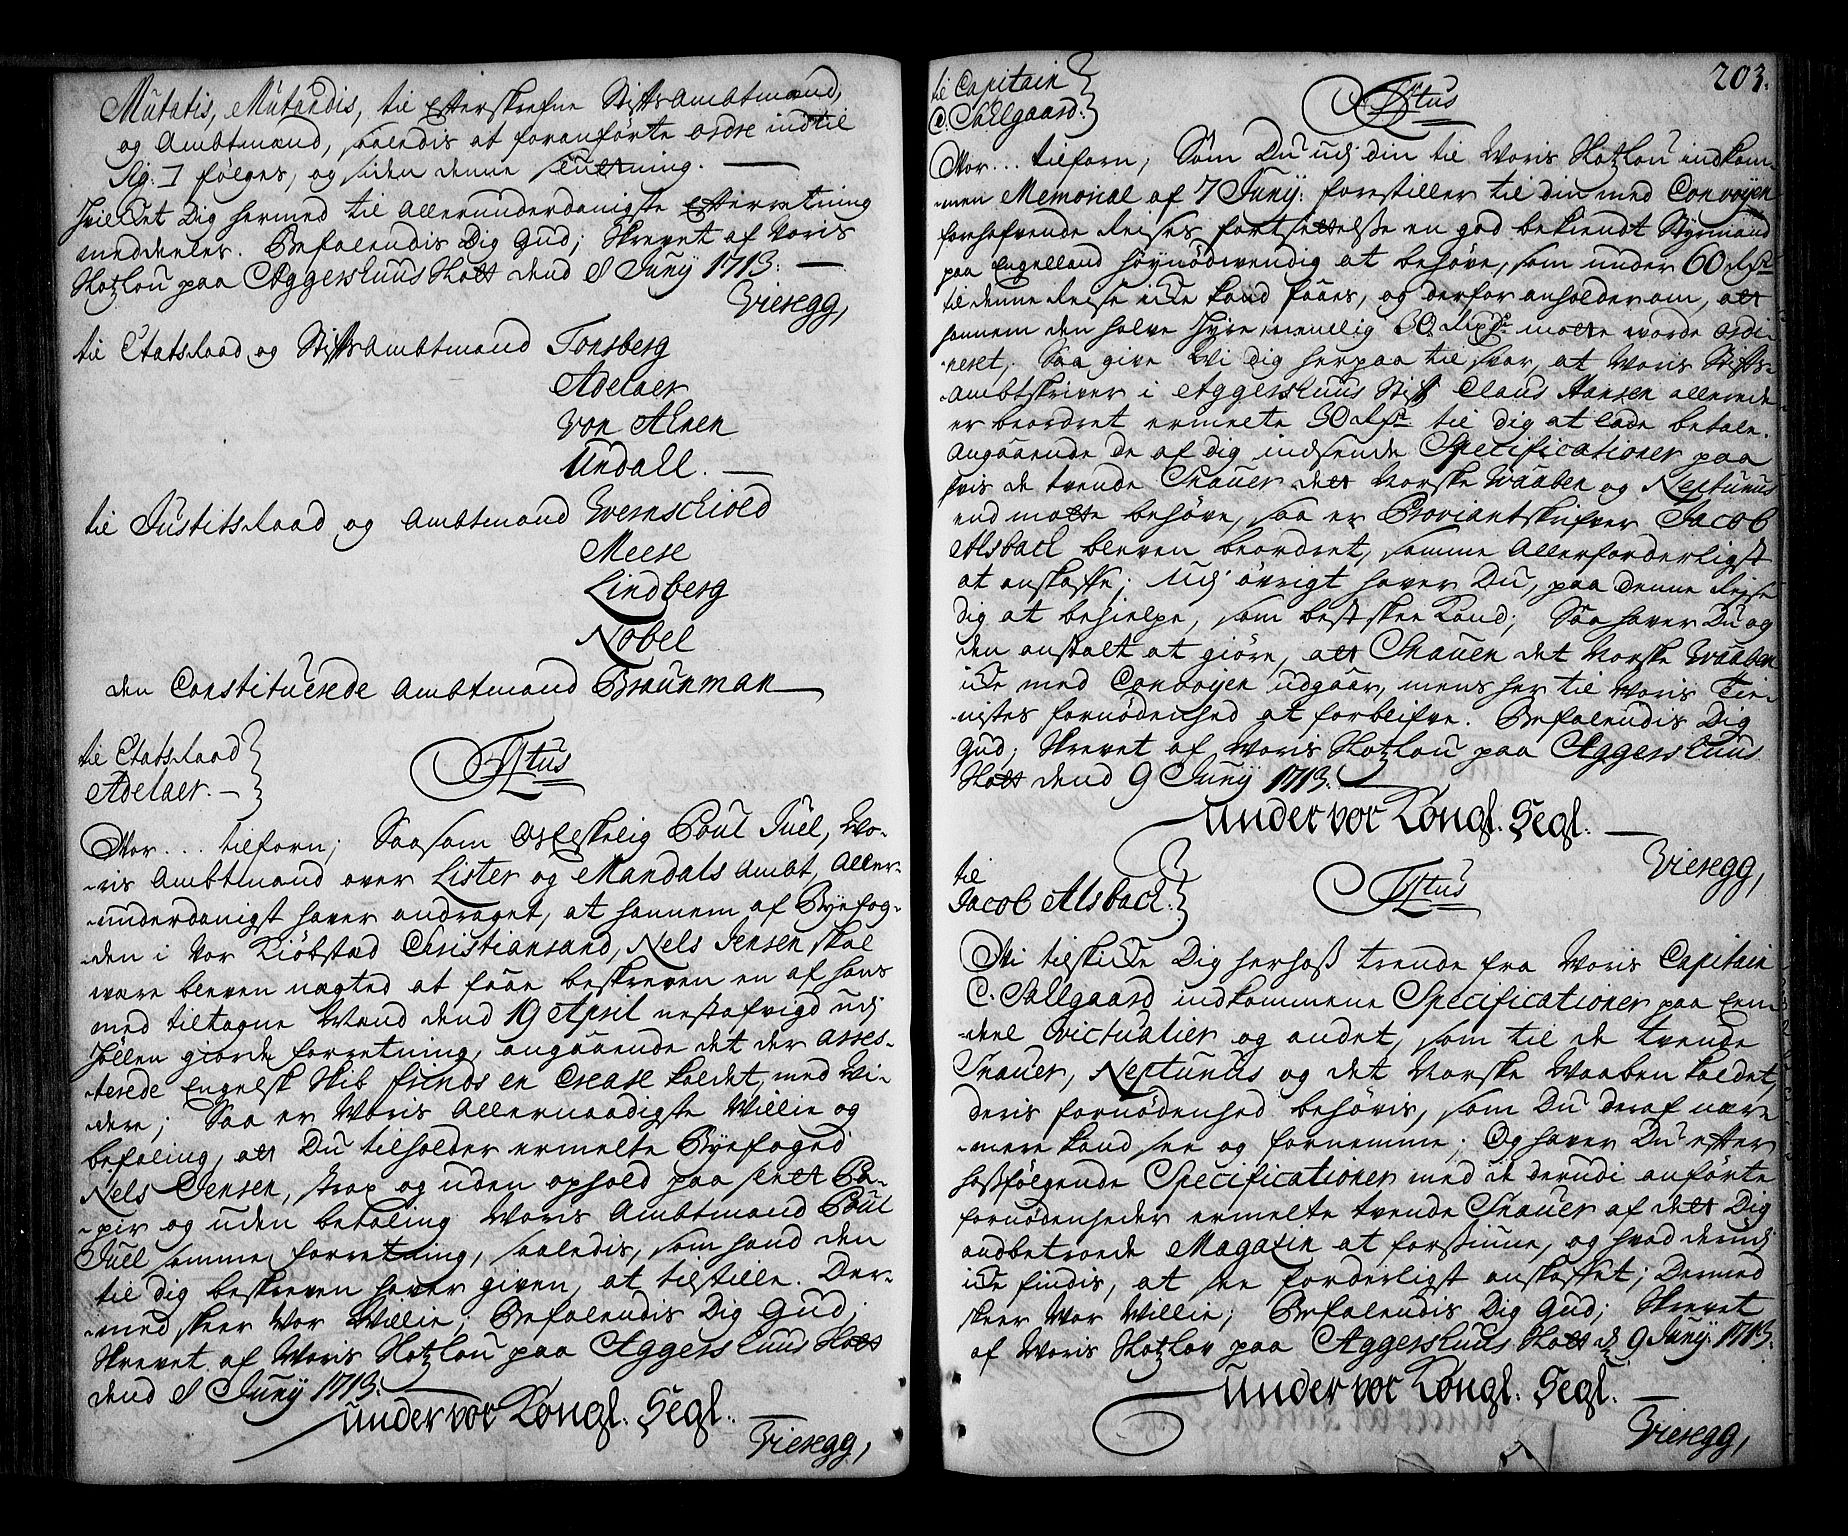 Mutatis, Mutandis, til Efterskrefne Stifts Ambtmænd,
og Ambtmænd, saaledis at foranførte ordre indtil
Sig: I følges, og siden denne slutning.
Hvilcket Dig hermed til Allerunderdanigste Efterretning
meddeeles. Befalendis Dig Gud; Skrevet af Voris
Slotzlou paa Aggershuus Slott dend 8 Junij 1713:
Vieregg,
til Etatsraad og StiftsAmbtmand Tonsberg
Adelaer
von Ahnen
Undall.
til Justitsraad og Ambtmand Wernschiold
Meese
Lindberg
Nobel
den Constituerede Ambtmand Braunman
til Etatsraad
Adelaer.
Ftus
Vor... tilforn; Saasom Os Elskelig Poul Juel, Vo-
ris Ambtmand over Lister og Mandals Ambt, Aller-
underdanigst haver andraget, at hannem af Byefog-
den i Vor Kiøbsted Christiansand, Nels Jensen skal
være bleven nægted at faae beskreven en af hans
med tiltagne Mænd dend 19 April nestafvigd udj
giorde forretning, angaaende det der arres-
terede Engelsk Skib Friends en Crease kaldet, med Vi-
dere; Saa er Voris Allernaadigste Villie og
befaling, att Du tilholder ermelte Byefoged
Nels Jensen, strax og uden ophold paa slett Pa-
pir og uden betaling Voris Ambtmand Poul
Juel samme forretning, saaledis, som hand den
til dig beskreven haver given, at tilstille. Der-
med skeer Vor Villie; Befalendis Dig Gud;
Skrevet af Voris Slotzlou paa Aggershuus Slott
dend 8 Junij 1713:
under vor Kongl. Segl.
Vieregg,
203.
til Capitain
C. Sellgaard.
Ftus
Vor... tilforn; Som Du udj din til Voris Slotzlou indkom-
men Memorial af 7 Junij: forestiller til din med Convoyen
forehafvende Reises fortsettelse en god bekiendt Styrmand
paa Engelland høynødvendig at behøve, som under 60 Rdr
til denne Reise icke kand faaes, og derfor anholder om, att
hannem den halve Hyre nemlig 30 Rixdr matte worde ordi-
neret, Saa give Wi dig herpaa til svar, at Voris Stifts-
Ambtskriver i Aggershuus Stift Claus Hansen allerede
er beordret ermelte 30 Rdr til dig at lade betale.
Angaaende de af dig indsende Specificationer paa
hvis de tvende Snauer dett Norske Vaaben og Neptunus
end matte behøve, saa er Proviantskrifver Jacob
Alsbach bleven beordret, samme Allerforderligst
at anskaffe; Udj øvrigt haver Du, paa denne Reise
dig at behielpe, som best skee kand; Saa haver Du og
den anstalt at giøre, att Snauen det Norske Vaaben
icke med Convoyen udgaar, mens her til Voris Tie-
nistes fornødenhed at forblifve. Befalendis Dig
Gud; Skrevet af Voris Slotzlou paa Aggershuus
Slott dend 9 Junij 1713:
under vor Kongl. Segl.
Vieregg,
til
Jacob Alsbach.
Ftus
Vi tilskicke Dig herhoss trende fra Voris Capitain
C. Sellgaard indkommene Specificationer paa Een-
deel Victualier og andet, som til de tvende
Snauer, Neptunus og det Norske Vaaben kaldet,
deris fornødenhed behøvis, som Du deraf nær-
mere kand see og fornemme; Og haver Du efter
hossfølgende Specificationer med de derudi anførte
fornødenheder ermelte tvende Snauer af dett Dig
andbetroede Magazin at forsiune, og hvad derudj
icke findis, at see forderligst anskaffet; Dermed
skeer Vor Villie; Befalendis Dig Gud; Skrevet
af Voris Slotzlov paa Aggershuus Slott d. 9 Junij 1713:
under vor Kongl. Segl.
Vieregg,